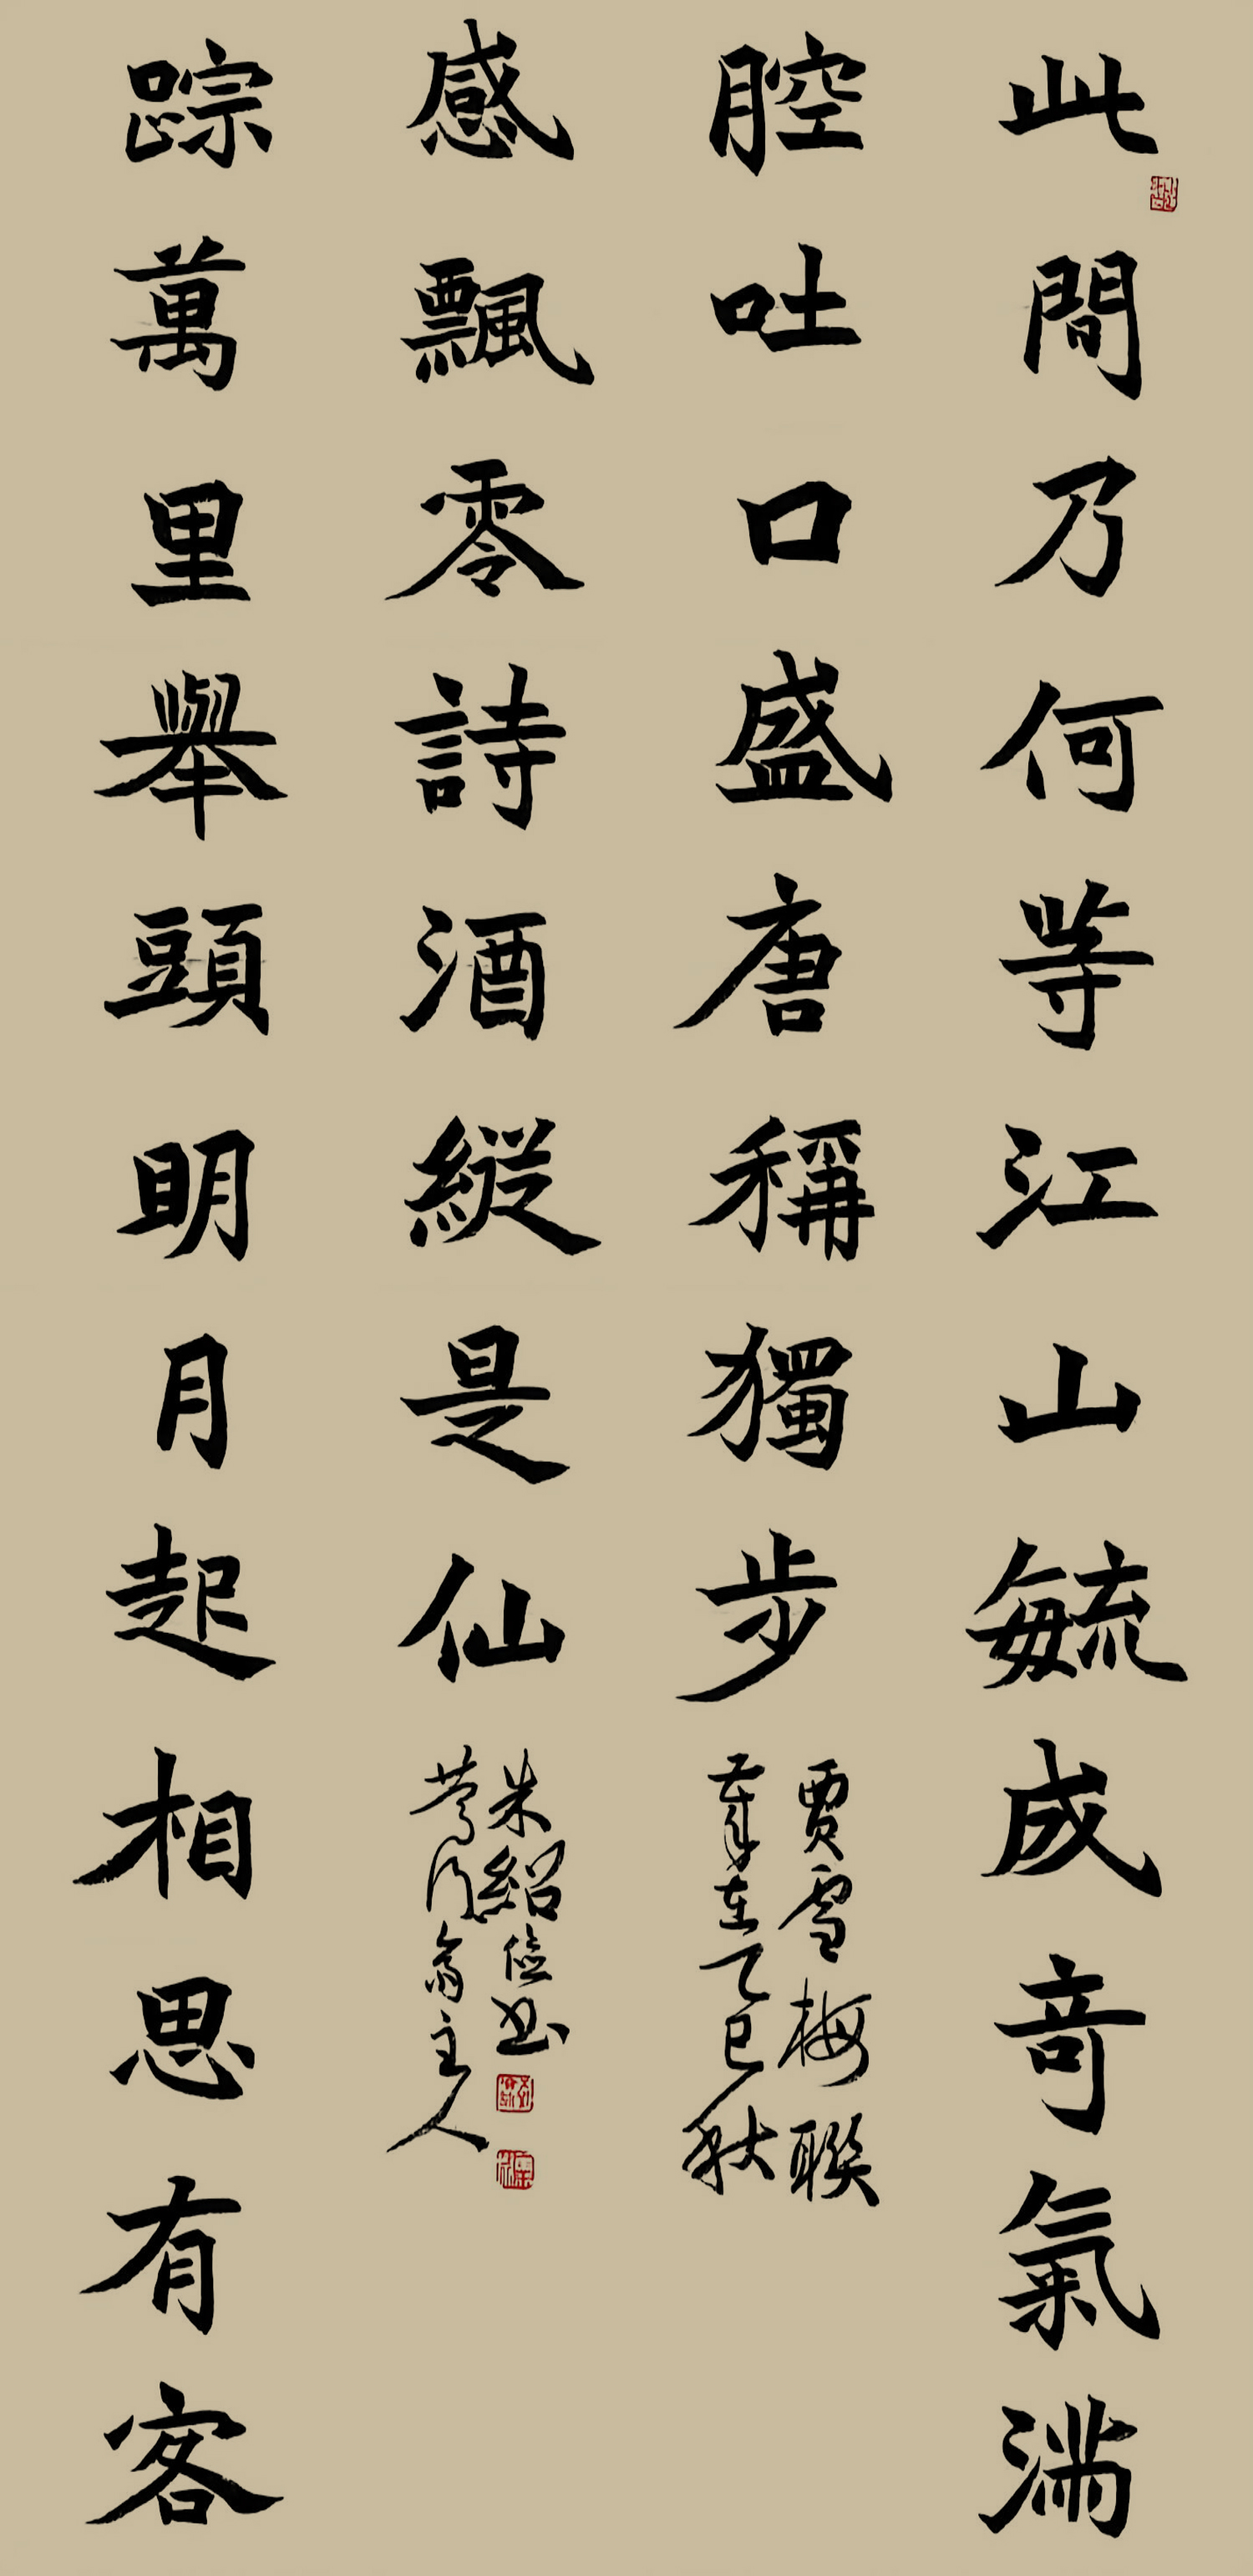 此間乃何等江山毓成奇氣滿
腔吐口盛唐稱獨步
賈雪梅聯
歲在乙巳秋
感飄零詩酒縱是仙
朱紹儉書
齋主人
踪萬里舉頭明月起相思有客